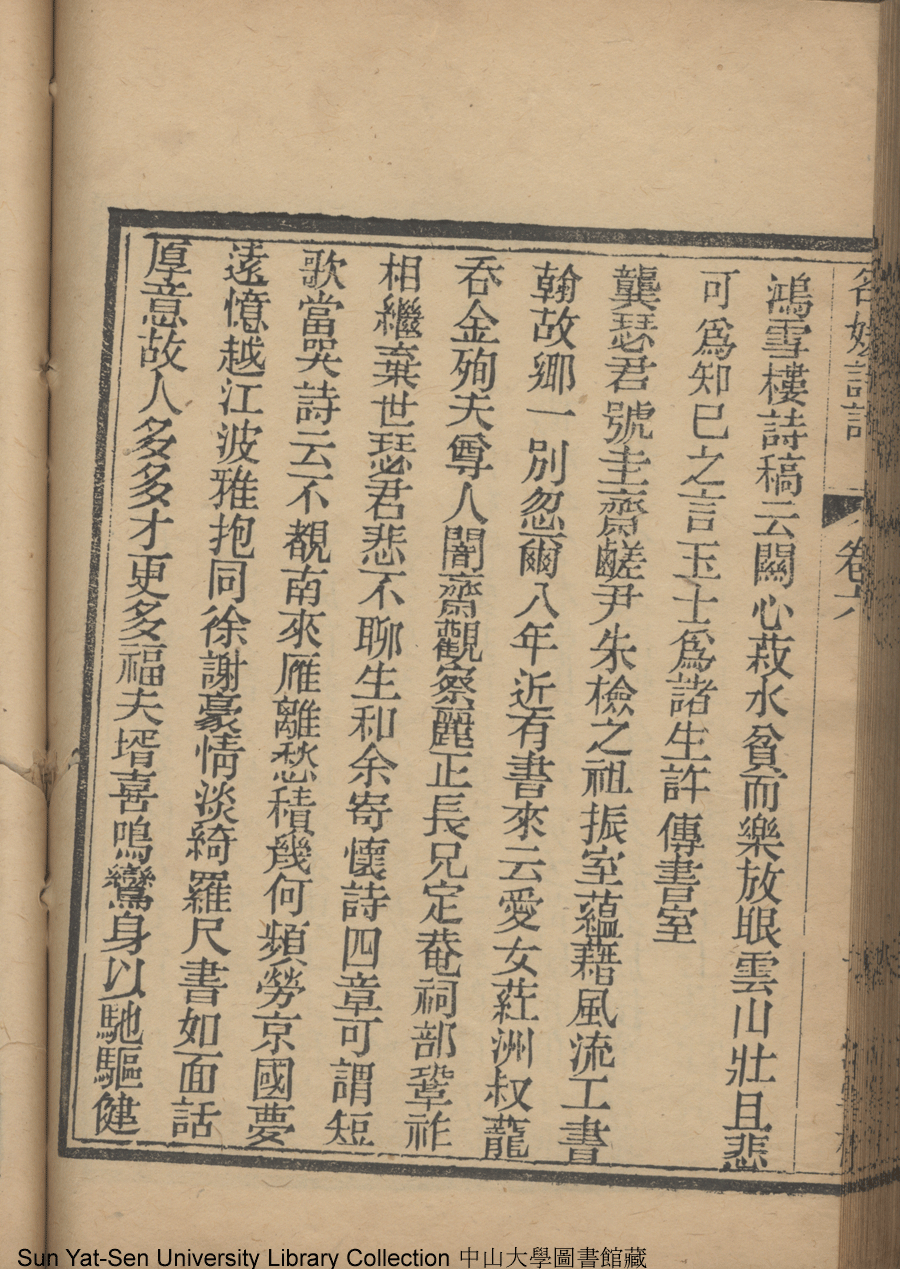 名媛詩話 卷六
鴻雪樓詩稿云關心菽水貧而樂放眼雲山壯且悲
可爲知已之言玉士爲諸生許傳書室
龔瑟君號圭齋鹺尹朱檢之祖振室蘊藉風流工書
翰故鄉一別忽爾八年近有書來云愛女莊洲叔蘢
吞金殉夫尊人闇齋觀察麗正長兄定菴祠部鞏祚
相繼棄世瑟君悲不聊生和余寄懷詩四章可謂短
歌當哭詩云不覩南來雁離愁積幾何頻勞京國夢
遠憶越江波雅抱同徐謝豪情淡綺羅尺書如面話
厚意故人多多才更多福夫壻喜鳴鸞身以馳驅健
Sun Yat-Sen University Library Collection 中山大學圖書館藏